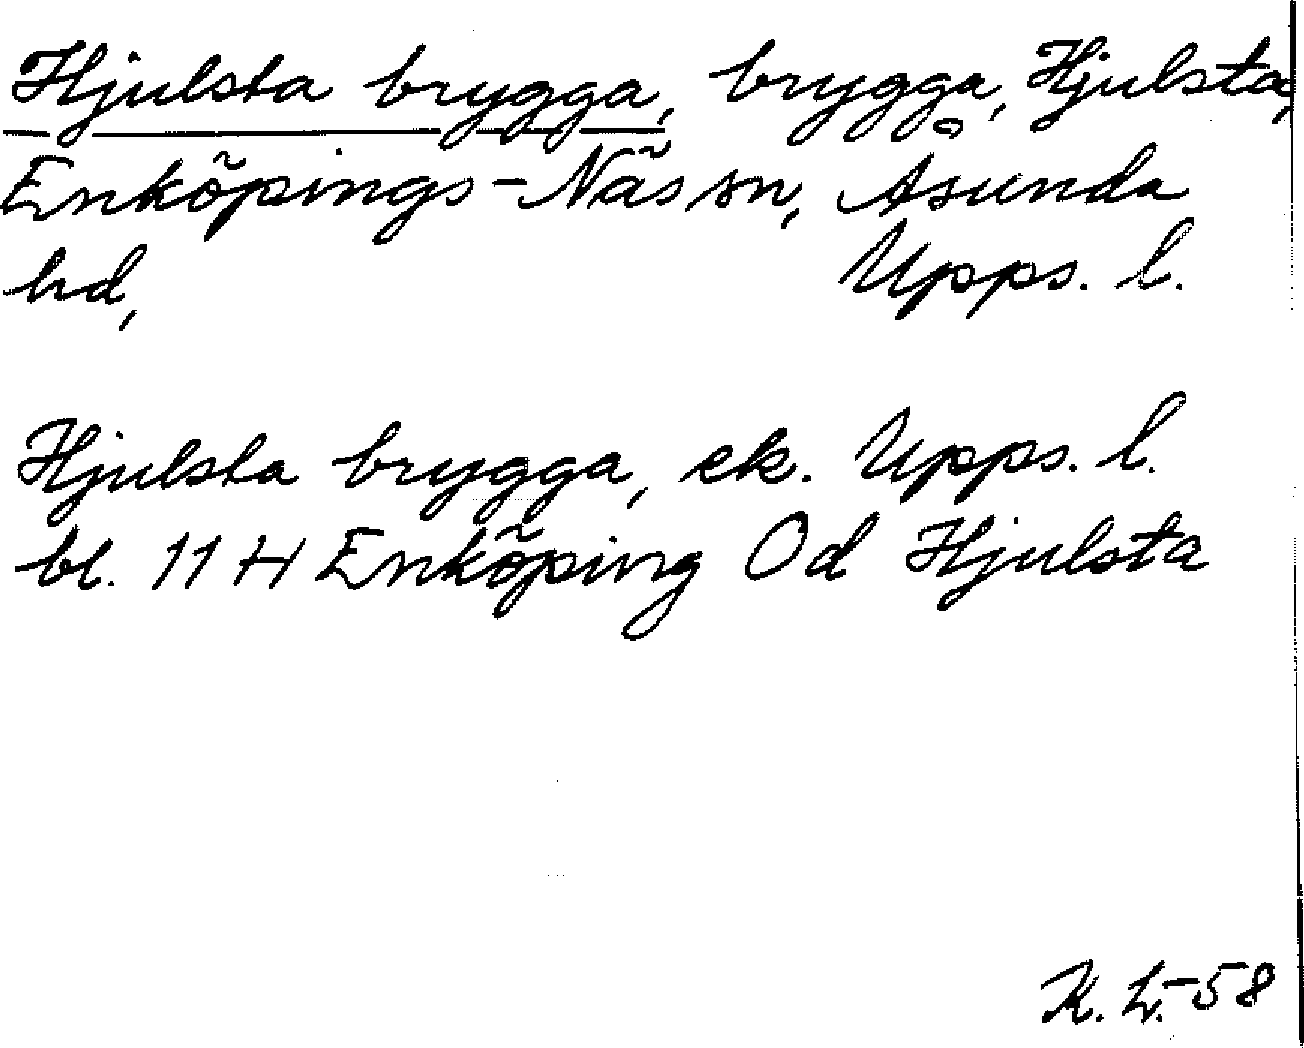 Hjulsta brygga, brygga, Hjulsta,
Enköpings-Näs sn, Åsunda
hd, Upps. l.
Hjulsta brygga, ek. Upps. l.
bl. 11 H Enköping Od Hjulsta
K. L.-58